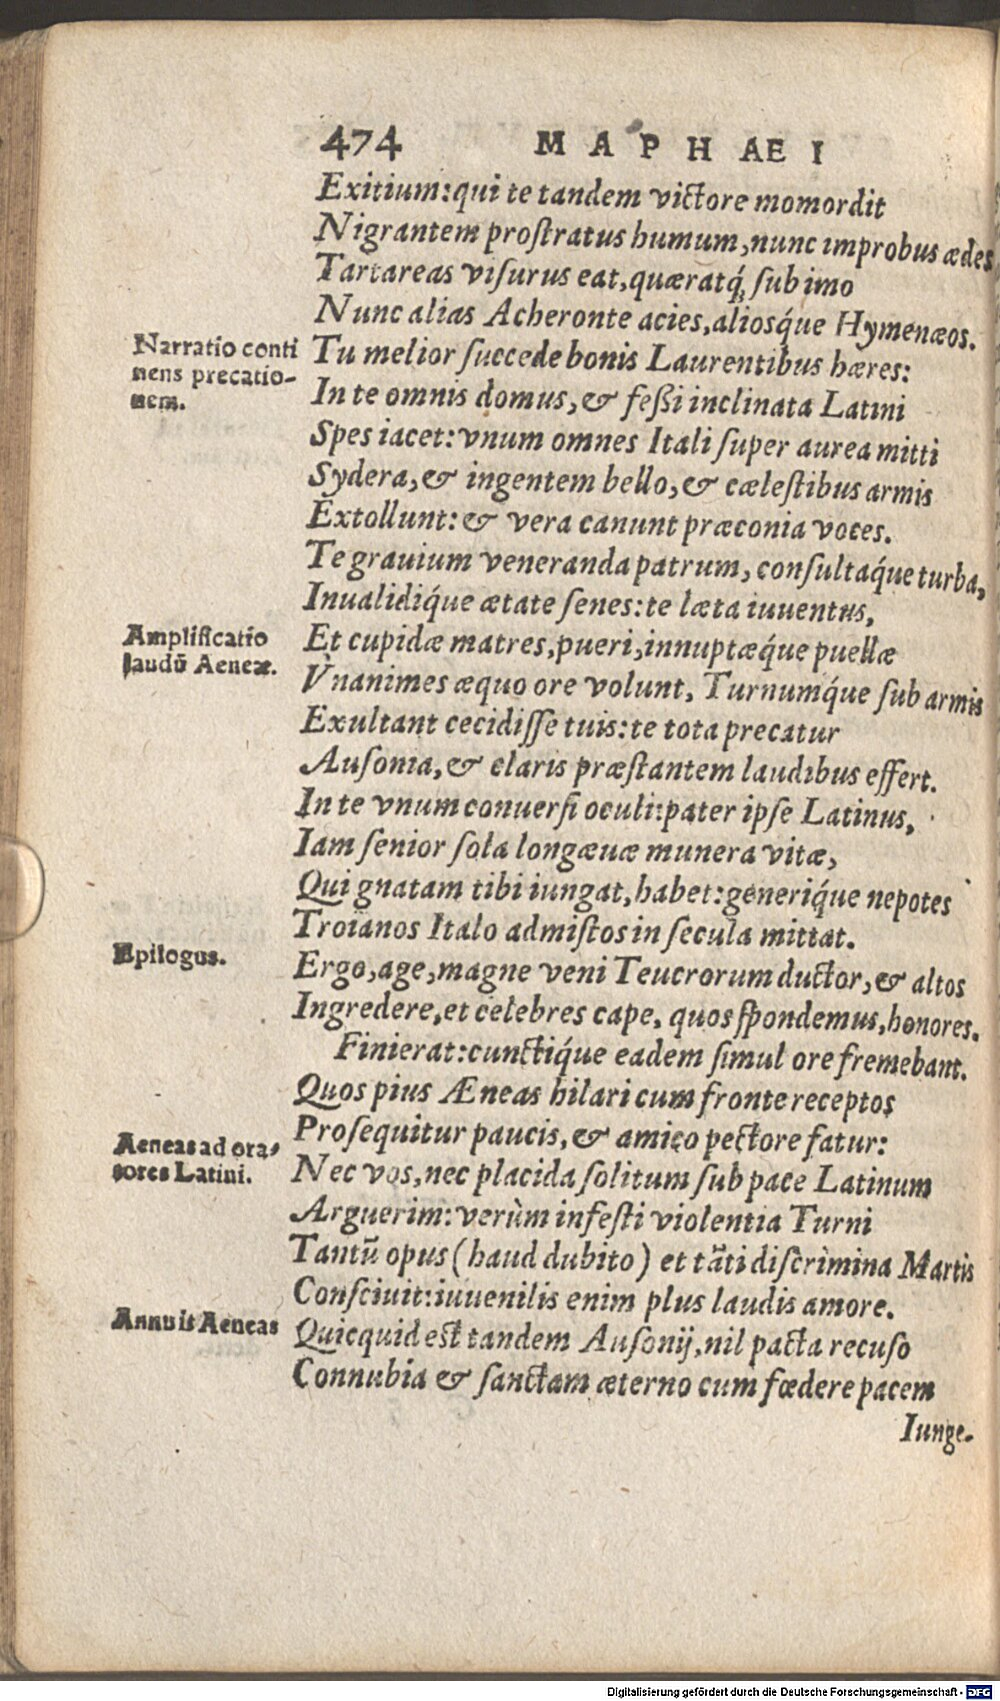 474 MAPHAEI
Exitium: qui te tandem victore momordit
Nigrantem prostratus humum, nunc improbus ædes
Tartareas visurus eat, quæratq́; sub imo
Nunc alias Acheronte acies, aliosq́ue Hymenæos.
Narratio conti
nens precatio-
nem.
Tu melior succede bonis Laurentibus hæres:
In te omnis domus, & feßi inclinata Latini
Spes iacet: vnum omnes Itali super aurea mitti
Sydera, & ingentem bello, & cælestibus armis
Extollunt: & vera canunt præconia voces.
Te grauium veneranda patrum, consultaq́ue turba,
Inualidiq́ue ætate senes: te læta iuuentus,
Amplificatio
laudū Aeneæ.
Et cupidæ matres, pueri, innuptæq́ue puellæ
Vnanimes æquo ore volunt, Turnumq́ue sub armis
Exultant cecidisse tuis: te tota precatur
Ausonia, & claris præstantem laudibus effert.
In te vnum conuersi oculi: pater ipse Latinus,
Iam senior sola longæuæ munera vitæ,
Qui gnatam tibi iungat, habet: generiq́ue nepotes
Troianos Italo admistos in secula mittat.
Epilogus.
Ergo, age, magne veni Teucrorum ductor, & altos
Ingredere, et celebres cape, quos spondemus, honores.
Finierat: cunctiq́ue eadem simul ore fremebant.
Quos pius Æneas hilari cum fronte receptos
Aeneas ad ora-
tores Latini.
Prosequitur paucis, & amico pectore fatur:
Nec vos, nec placida solitum sub pace Latinum
Arguerim: verùm infesti violentia Turni
Tantū opus (haud dubito) et tāti discrimina Martis
Consciuit: iuuenilis enim plus laudis amore.
Annuit Aeneas
Quicquid est tandem Ausonij, nil pacta recuso
Connubia & sanctam æterno cum fœdere pacem
Iunge.
Digitalisierung gefördert durch die Deutsche Forschungsgemeinschaft - DFG